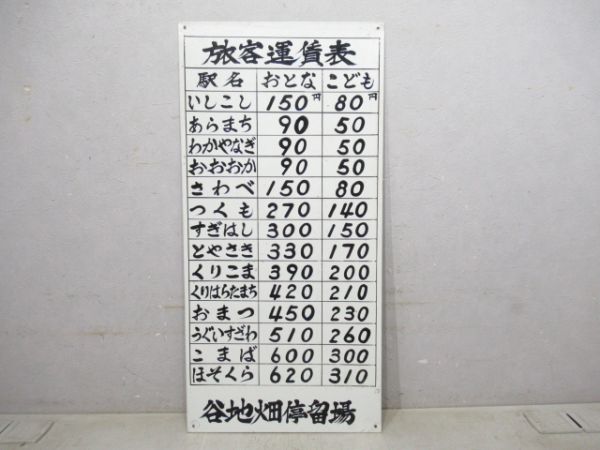 旅客運賃表
駅名 おとな こども
いしこし 150円 80円
あらまち 90 50
わかやなぎ 90 50
おおおか 90 50
さわべ 150 80
つくも 270 140
すぎはし 300 150
とやさき 330 170
くりこま 390 200
くりはらたまち 420 210
おまつ 450 230
うぐいすざわ 510 260
こまば 600 300
ほそくら 620 310
谷地畑停留場